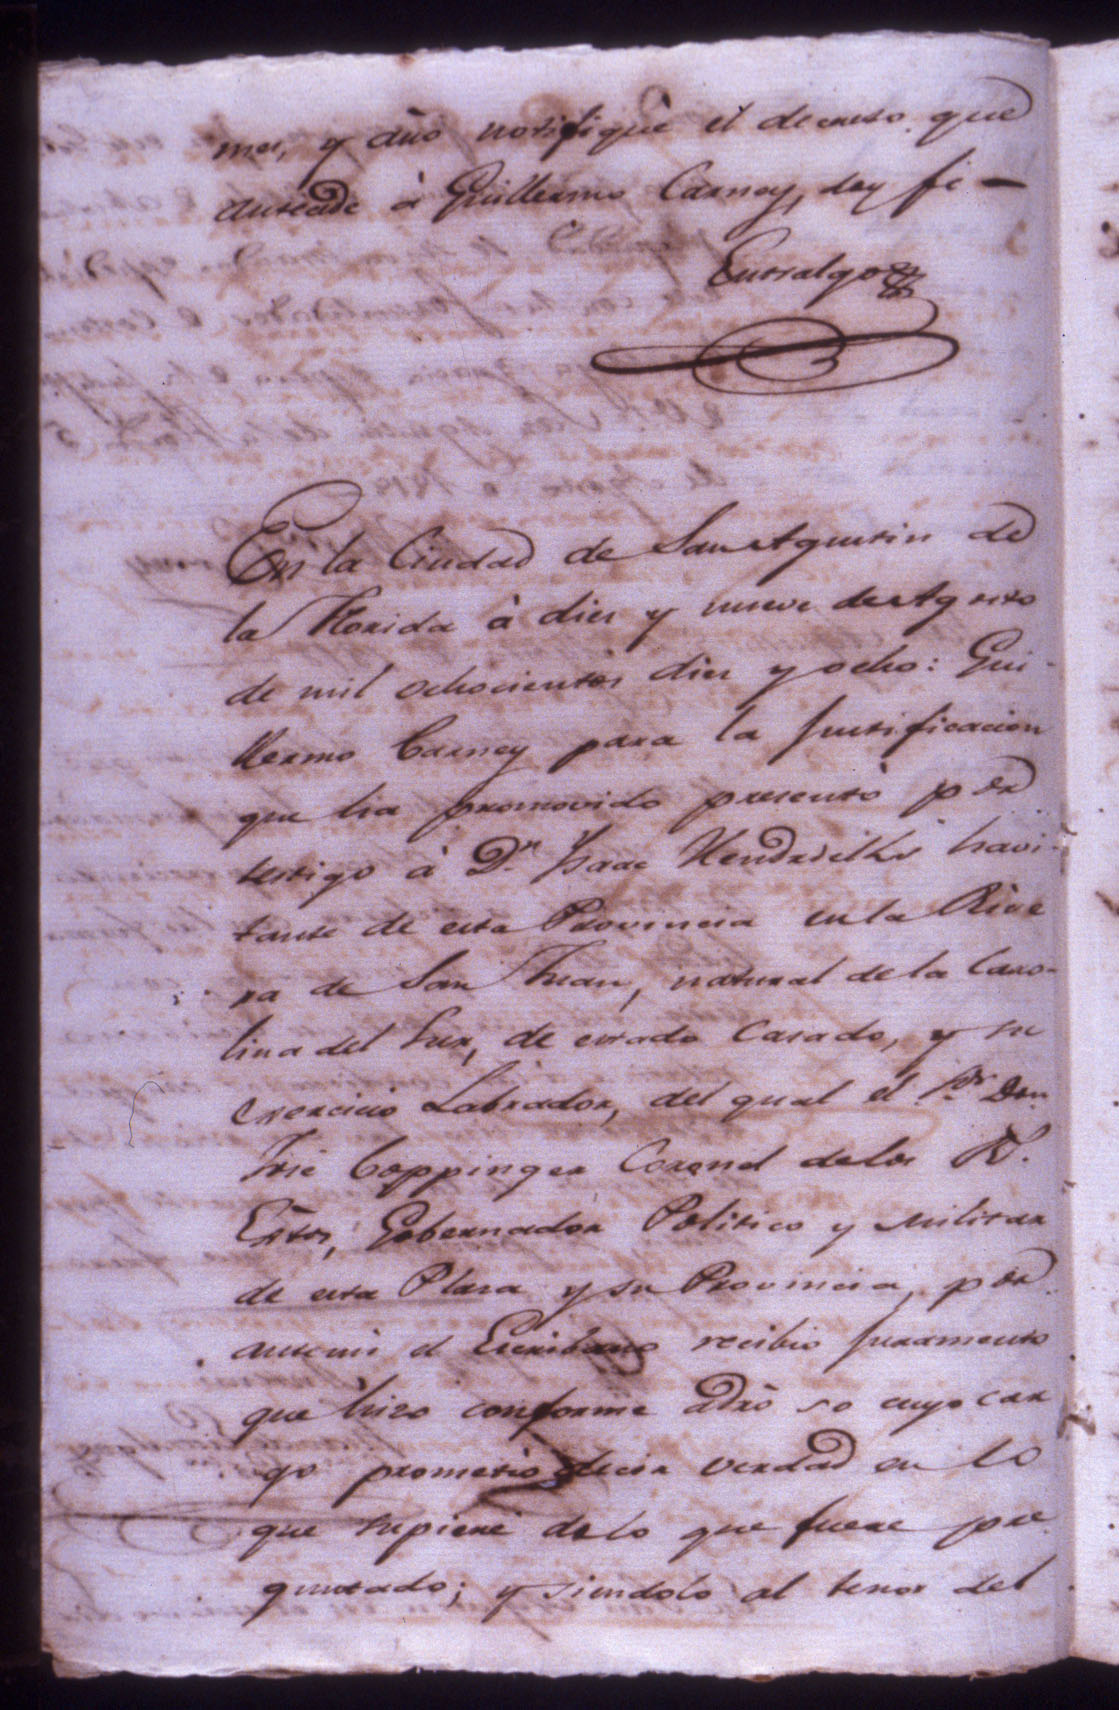 mes, y año notifiqué el decreto que
antecede à Guillermo Carney, doy fe —
Entralgo
En la Ciudad de San Agustin de
la Florida à dies y nueve de Agosto
de mil ochocientos dies y ocho: Gui-
llermo Carney para la justificacion
que ha promovido presentò por
testigo à Dn. Isaac Hendricks havi-
tante de esta Provincia en la Rive
ra de San Juan, natural de la Caro-
lina del Sur, de estado casado, y su
exercicio Labrador, del qual el Sor. Don
José Coppinger Coronel de los Rs.
Extos, Gobernador Politico y Militar
de esta Plaza y su Provincia, por
antemi el Escribano recibio juramento
que hizo conforme adro so cuyo car
go prometio decir verdad en lo
que supiere de lo que fuere pre
guntado; y siendolo al tenor del